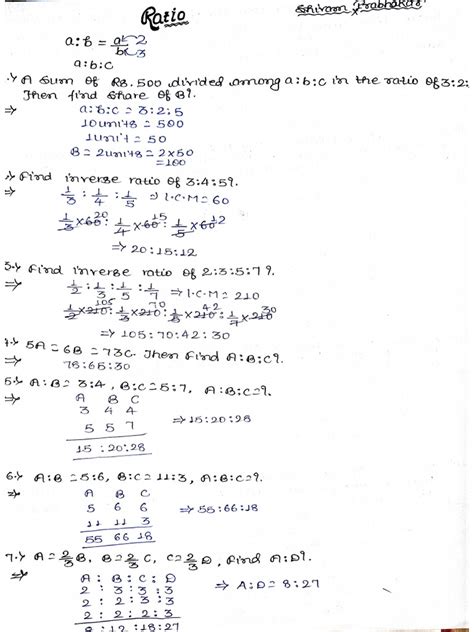 Ratio
Shivam Prabhakar
a:b = a/b → 2/3
a:b:c
1.→ A Sum Of Rs. 500 divided among a:b:c in the ratio of 3:2:
Then find Share Of B?.
⇒ a:b:c = 3:2:5
10units = 500
1unit = 50
B = 2units = 2×50
=100
2.→ Find inverse ratio Of 3:4:5?.
⇒ 1/3 : 1/4 : 1/5 ⇒ L.C.M = 60
1/3×60 20 : 1/4×60 15 : 1/5×60 12
⇒ 20:15:12
3.→ Find inverse ratio of 2:3:5:7?.
⇒ 1/2 : 1/3 : 1/5 : 1/7 ⇒ L.C.M = 210
1/2×210 105 : 1/3×210 70 : 1/5×210 42 : 1/7×210 30
⇒ 105:70:42:30
5A = 6B = 73C. Then Find A:B:C?.
⇒ 78:65:30
5.→ A:B = 3:4, B:C = 5:7, A:B:C=?.
⇒ A B C
3 4 4
5 5 7 ⇒ 15:20:28
15 : 20 : 28
6.→ A:B = 5:6, B:C = 11:3, A:B:C=?.
⇒ A B C
5 6 6 ⇒ 55:66:18
11 11 3
55 66 18
7.→ A = 2/3 B, B = 2/3 C, C = 2/3 D, Find A:D?.
⇒ A : B : C : D ⇒ A:D = 8:27
2 : 3 : 3 : 3
2 : 2 : 3 : 3
2 : 2 : 2 : 3
8 : 12 : 18 : 27